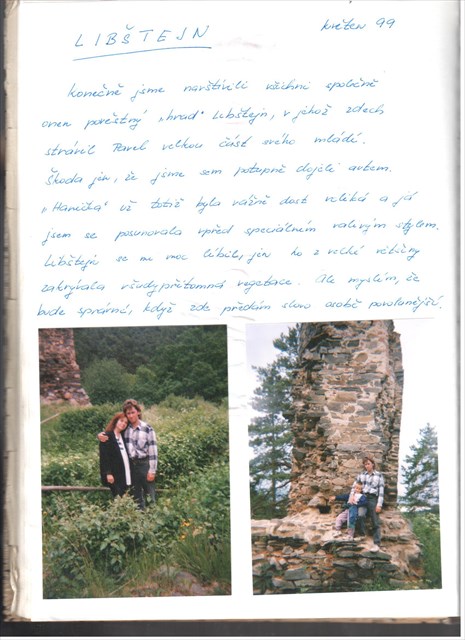 LIBŠTEJN
květen 99
Konečně jsme navštívili všichni společně
onen pověstný „hrad“ Libštejn, v jehož zdech
strávil Pavel velkou část svého mládí.
Škoda jen, že jsme sem potupně dojeli autem.
„Hanička“ už totiž byla vážně dost veliká a já
jsem se posunovala vpřed speciálním valivým stylem.
Libštejn se mi moc líbil, jen ho z velké většiny
zakrývala všudypřítomná vegetace. Ale myslím, že
bude správné, když zde předám slovo osobě povolanější.